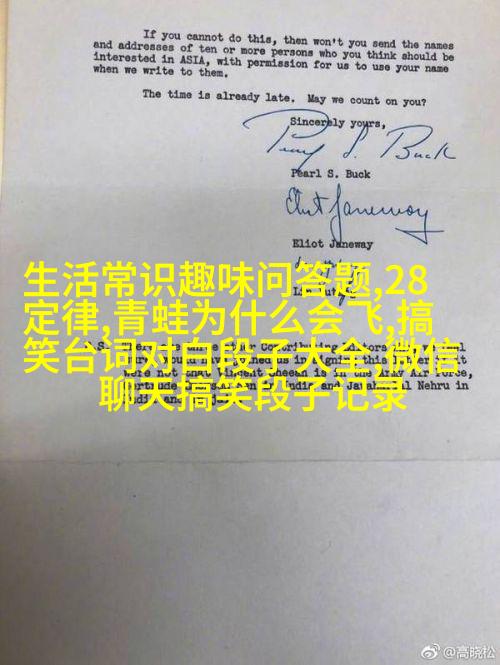 If you cannot do this, then won't you send the names
and addresses of ten or more persons who you think should be
interested in ASIA, with permission for us to use your name
when we write to them.
The time is already late. May we count on you?
Sincerely yours,
Pearl S. Buck
Pearl S. Buck
Eliot Janeway
Eliot Janeway
生活常识趣味问答题,28
定律,青蛙为什么会飞,搞
笑台词对白段子大全,微信
聊天搞笑段子记录
Contributing
this
were not that Vincent Sheean is in the Army Air Force,
in India and Jawaharlal Nehru in
@高晓松